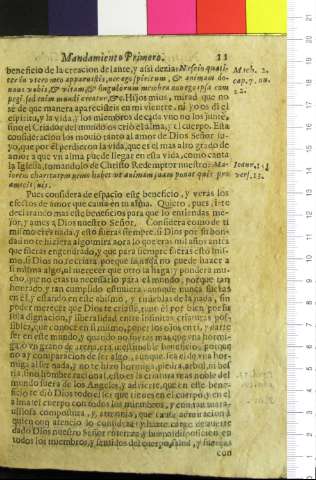 Mandamiento Primero. 11
beneficio de la creacion delante, y assi dezia: Nescio quali-
ter in vtero meo apparuistis, neque spiritum, & animam do-
naui vobis, & vitam, & singulorum membra non ego ipsa com
pegi, sed enim mundi creator, &c. Hijos mios, mirad que no
sè de que manera aparecisteis en mi vientre, ni yo os dì el
espiritu, y la vida, y los miembros de cada vno no los juntè,
sino el Criador del mundo os criò el alma, y el cuerpo. Esta
consideracion los mouiò tanto al amor de Dios Señor su-
yo, que por èl perdieron la vida, que es el mas alto grado de
amor a que vn alma puede llegar en esta vida, como canta
la Iglesia, tomandolo de Christo Redemptor nuestro: Ma-
iorem charitatem nemo habet vt animam suam ponat quis pro
amicis suis.
Mach. 2.
cap. 7. nu.
22.
Ioan. 15
vers. 13.
Pues considera de espacio este beneficio, y veras los
efectos de amor que causa en tu alma.
Considera como de ti
mismo eres nada, y esto fueras siempre, si Dios por su bon-
dad no te hiziera algo: mira aora lo que eras mil años antes
que fueras engendrado, y que para siempre fueras esto mis-
mo, si Dios no te criara, porque la nada no puede hazer a
si misma algo, ni merecer que otro la haga: y pondera mu-
cho, que no eras tu necessario para el mundo, porque tan
honrado, y tan cumplido estuuiera, aunque nunca fueras
en èl, y estando en este abismo, y tinieblas de la nada, sin
poder merecer que Dios te criasse, que èl por bien, por su
sola dignacion, y liberalidad, entre infinitas criaturas pos-
sibles, que conoce en si mismo, poner los ojos en ti, y darte
ser en este mundo, y quando no fueras mas que vna hormi-
ga, o vn grano de arena, era inestimable beneficio, porque
no ay comparacion de ser algo, aunque sea el de vna hor-
miga a ser nada, y no te hizo hormiga, piedra, arbol, ni bes-
tia, sino hombre racional, esto es la criatura mas noble del
mundo fuera de los Angeles, y aduierte, que en este bene-
ficio te diò Dios todo el ser que tienes en el cuerpo, y en el
alma: el cuerpo con todos los miembros, y con tan mara-
uillosa compostura, y armonia, que causa admiracion à
quien con atencio lo considera: y harte cargo de auerte
dado Dios nuestro Señor entereza, y buena disposicion en
todos los miembros, y sentidos del cuerpo, salud, y fuerças
con